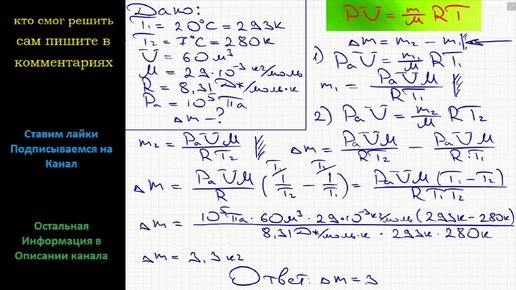 кто смог решить
сам пишите в
комментариях
Ставим лайки
Подписываемся на
Канал
Остальная
Информация в
Описании канала
Дано:
T₁ = 20°C = 293к
T₂ = 7°C = 280к
V = 60м³
M = 29·10⁻³ кг/моль
R = 8,31 Дж/моль·к
Pa = 10⁵ Па
Δm - ?
PV = m/M RT
Δm = m₂ - m₁
1) PaV = m₁/M RT₁
m₁ = PaVM/RT₁
2) PaV = m₂/M RT₂
m₂ = PaVM/RT₂ Δm = PaVM/RT₂ - PaVM/R·T₁
Δm = PaVM/R (T₁/ 1/T₂ - T₂/ 1/T₁) = PaVM(T₁-T₂)/RT₁T₂
Δm = 10⁵Па·60м³·29·10⁻³кг/моль(293к-280к)/8,31Дж/моль·к·293к·280к
Δm = 3,3кг
Ответ: Δm = 3